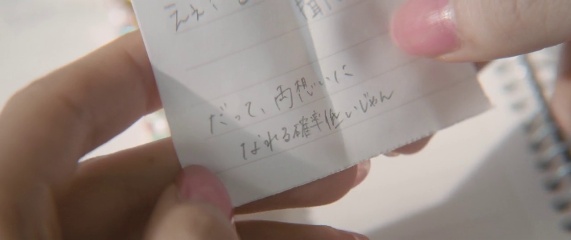 ええ!
聞
だって、両想いに
なれる確率低いじゃん